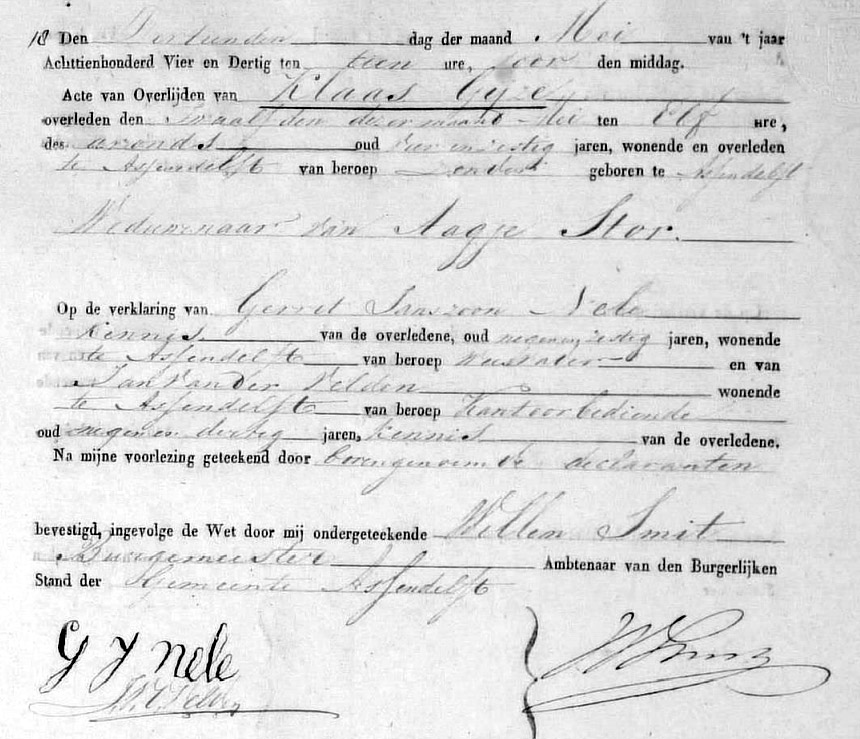 18 Den Dertienden dag der maand Mei van 't jaar
Achttienhonderd Vier en Dertig ten tien ure, voor den middag.
Acte van Overlijden van Klaas Gyze
overleden den Twaalfden dezer maand Mei ten Elf ure,
des avonds oud vier en zestig jaren, wonende en overleden
te Assendelft van beroep geboren te Assendelft
Weduwnaar van Aagje Stor.
Op de verklaring van Gerrit Janszoon Nele
Kennis van de overledene, oud negenenzestig jaren, wonende
te Assendelft van beroep en van
Jan van der Velden wonende
te Assendelft van beroep Kantoorbediende
oud negen en dertig jaren, kennis van de overledene.
Na mijne voorlezing geteekend door bovengenoemde declaranten
bevestigd, ingevolge de Wet door mij ondergeteekende Willem Smit
Burgemeester Ambtenaar van den Burgerlijken
Stand der Gemeente Assendelft
G J Nele
W Smit